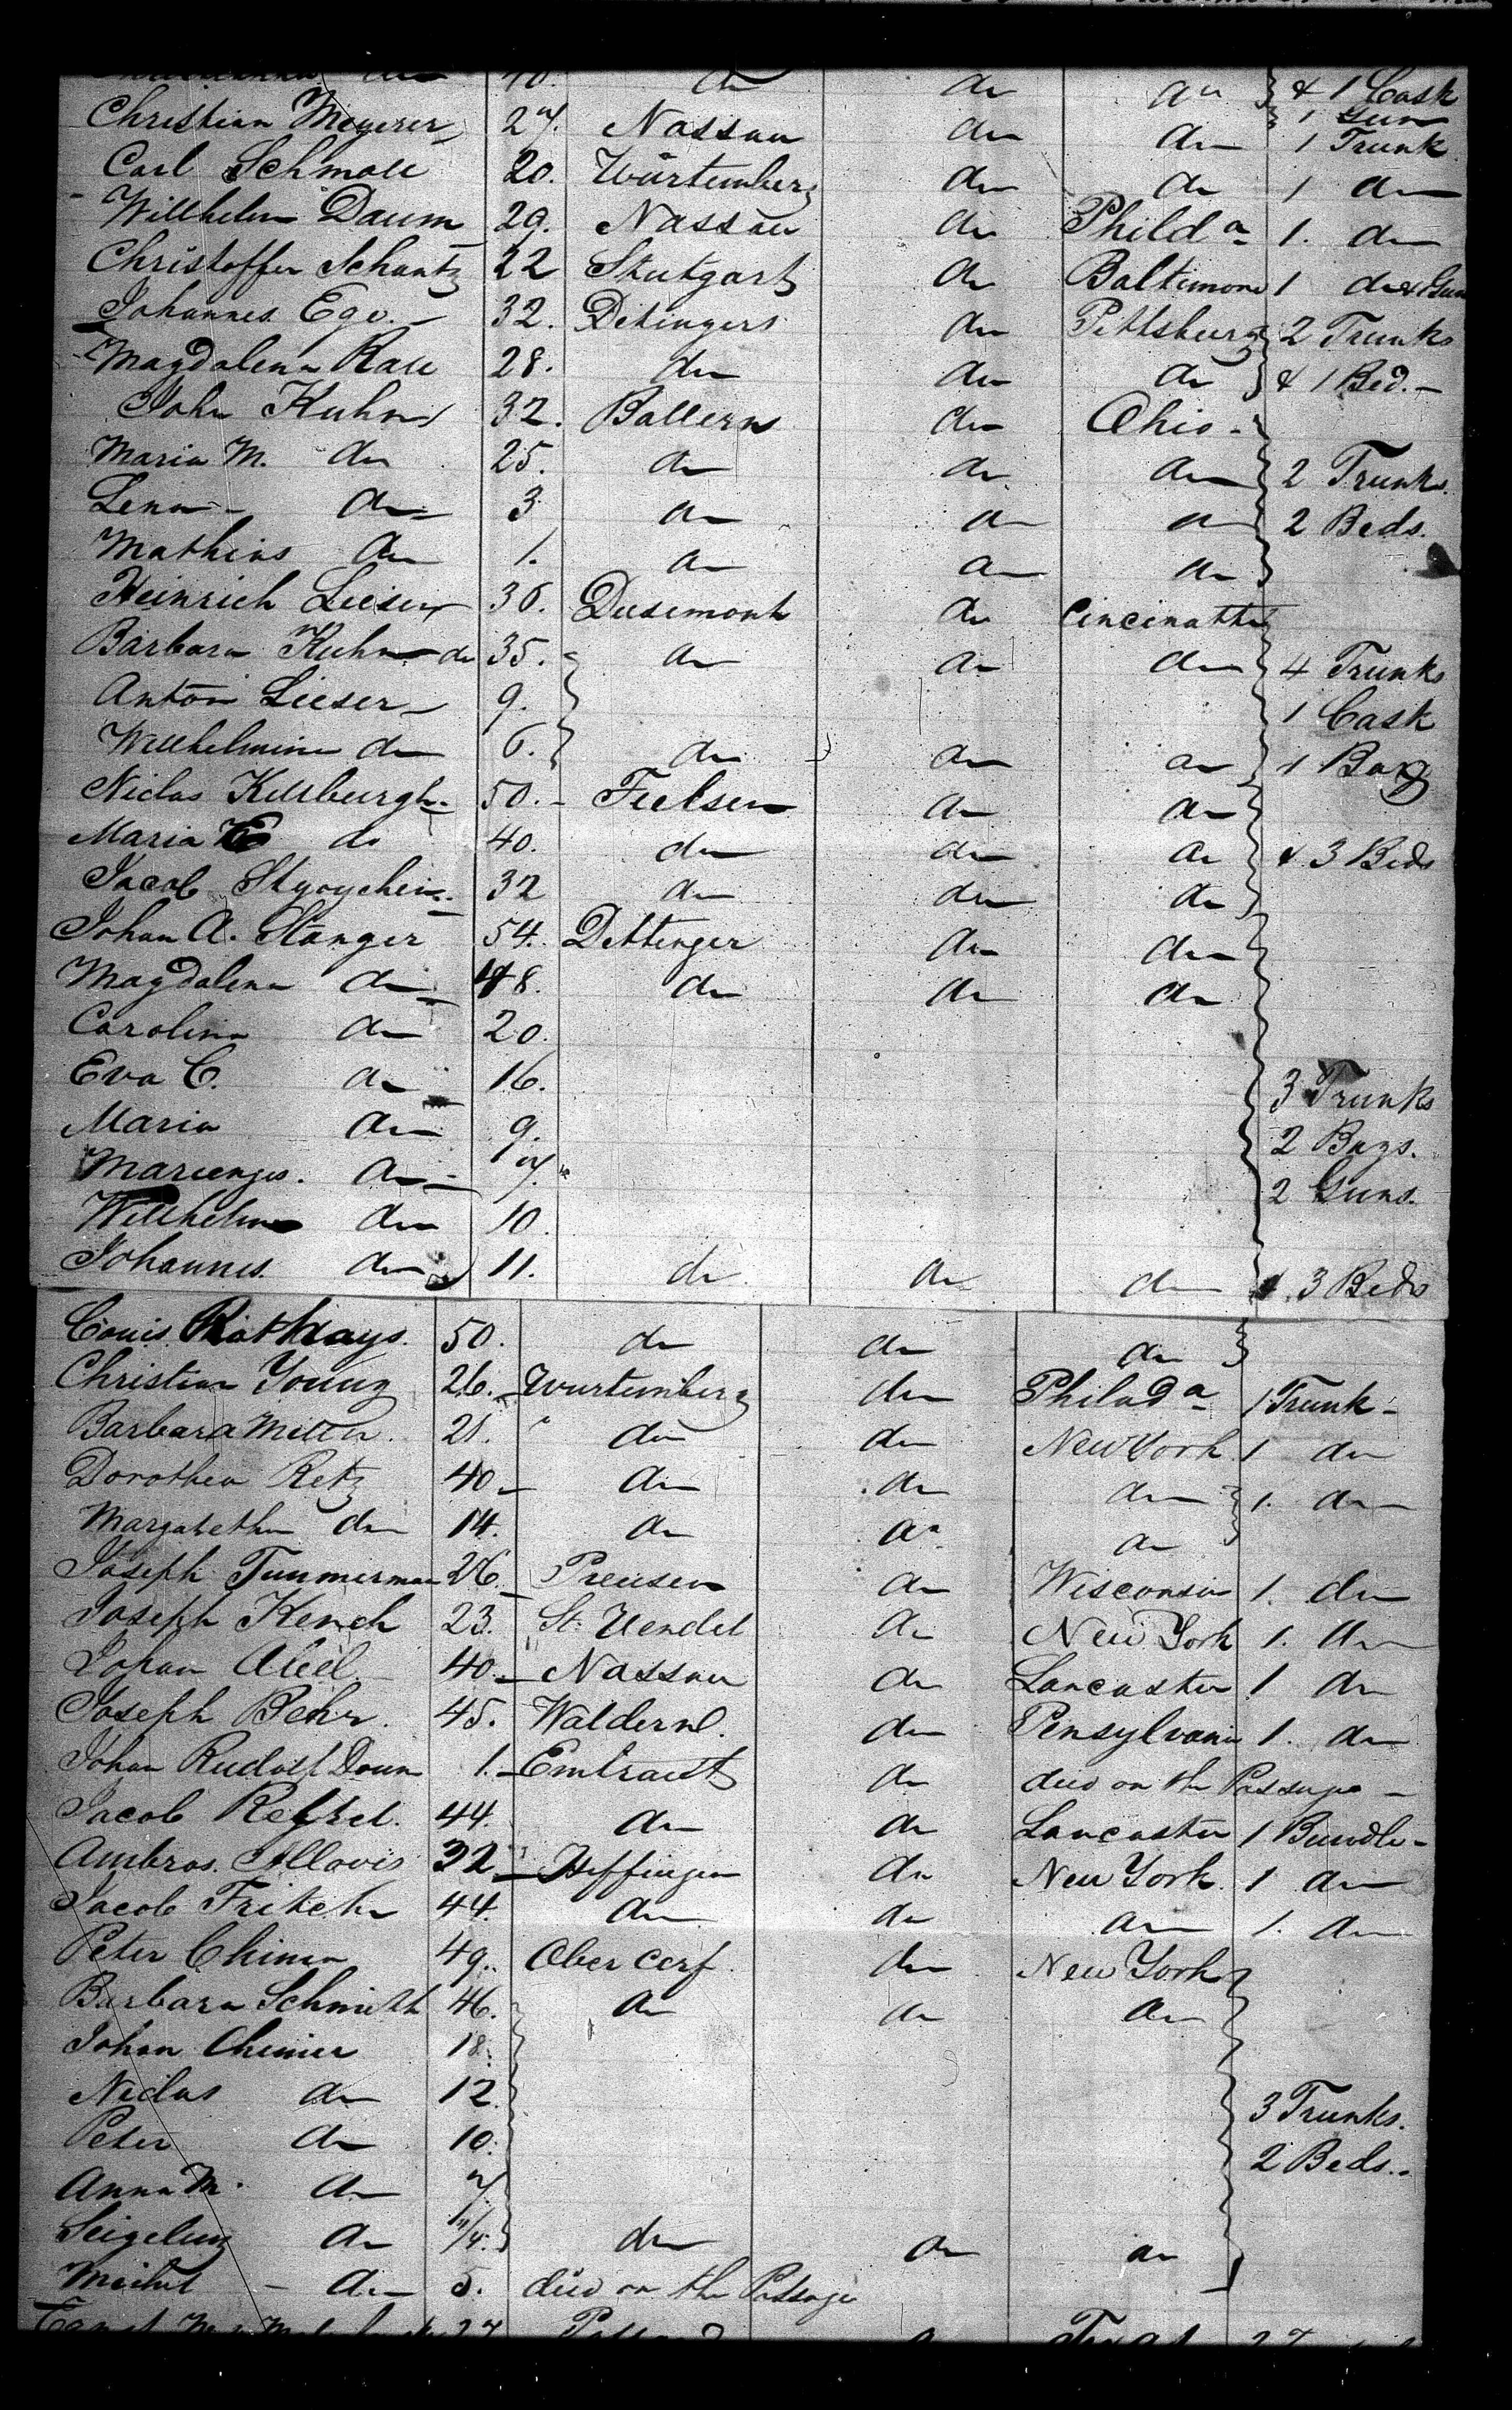 do 40. do do do & 1 Cask
1 Gun
Christian Meyerer 27. Nassau do do 1 Trunk
Carl Schmall 20. Würtemberg do do 1 do
Willhelm Daum 29. Nassau do Philda 1. do
Christoffer Schantz 22 Stutgart do Baltimore 1 do & 1 Gun
Johannes Ege. 32. Detingers do Pittsburg 2 Trunks
Magdalena Rau 28. do do do & 1 Bed.
John Kuhn 32. Ballern do Ohio
Maria M. do 25. do do do 2 Trunks.
Lena do 3 do do do 2 Beds.
Mathias do 1. do do do
Heinrich Lieser 36. Dusemont do Cincinatti
Barbara Kuhn do 35. do do do 4 Trunks
Anton Lieser 9. 1 Cask
Willhelmine do 6. do do do 1 Bag
Niclas Kilburgh 50. Fielsen do do
Maria do 40. do do do & 3 Beds
Jacob 32 do do do
Johan A. Stanger 54. Dettinger do do
Magdalena do 48. do do do
Carolina do 20.
Eva C. do 16. 3 Trunks
Maria do 9. 2 Bags.
do 7. 2 Guns.
Willhelm do 10.
Johannes. do 11. do do do & 3 Beds
Louis Rothhays. 50. do do do
Christian Young 26. Wurtemberg do Philada 1 Trunk
Barbara 21. do do New York 1 do
Dorothea Retz 40 do do do 1. do
Margaretha do 14. do do do
Joseph Timmerman 26. Preusen do Wisconsin 1. do
Joseph Kench 23. St. Wendel do New York 1. do
Johan 40. Nassau do Lancaster 1 do
Joseph Behr. 45. do Pensylvania 1. do
Johan Rudolf Daum 1. do died on the Passage
Jacob 44. do do Lancaster 1 Bundle
Ambros. 32 Heffingen do New York. 1 do
Jacob Fritch 44. do do do 1. do
Peter Chimer 49. Ober Cerf. do New York
Barbara Schmith 46. do do do
Johan Chimer 18.
Niclas do 12. 3 Trunks.
Peter do 10. 2 Beds.
Anna M. do 7
do do do do
Michel do 5. died on the Passage
27 Texas